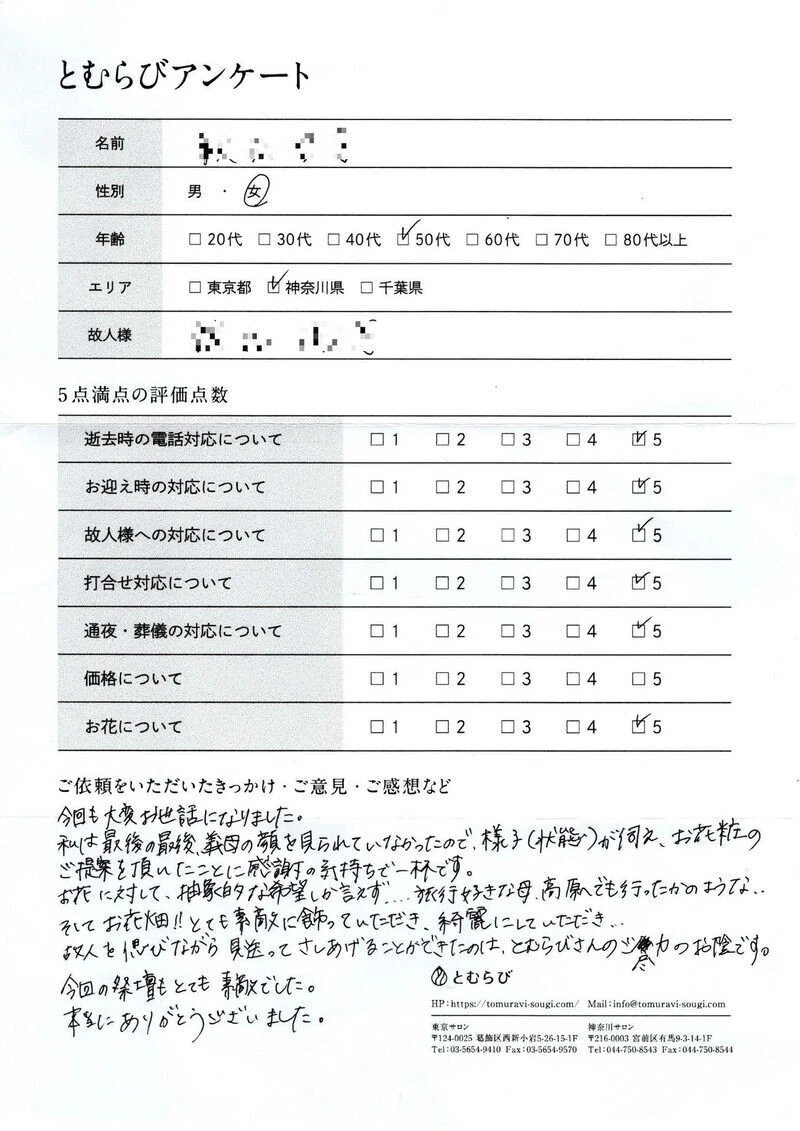 とむらびアンケート
名前
性別 男 ・ 女
年齢 □ 20代 □ 30代 □ 40代 ☑ 50代 □ 60代 □ 70代 □ 80代以上
エリア □ 東京都 ☑ 神奈川県 □ 千葉県
故人様
5点満点の評価点数
逝去時の電話対応について □ 1 □ 2 □ 3 □ 4 ☑ 5
お迎え時の対応について □ 1 □ 2 □ 3 □ 4 ☑ 5
故人様への対応について □ 1 □ 2 □ 3 □ 4 ☑ 5
打合せ対応について □ 1 □ 2 □ 3 □ 4 ☑ 5
通夜・葬儀の対応について □ 1 □ 2 □ 3 □ 4 ☑ 5
価格について □ 1 □ 2 □ 3 □ 4 □ 5
お花について □ 1 □ 2 □ 3 □ 4 ☑ 5
ご依頼をいただいたきっかけ・ご意見・ご感想など
今回も大変お世話になりました。
私は最後の最後、義母の顔を見られていなかったので、様子(状態)が伺え、お花粧の
ご提案を頂いたことに感謝の気持ちで一杯です。
お花に対して、抽象的な希望しか言えず....旅行好きな母、高原へでも行ったかのような..
そしてお花畑!!とても素敵に飾っていただき、綺麗にしていただき..
故人を偲びながら見送ってさしあげることができたのは、とむらびさんのご尽力のお陰です。
今回の祭壇もとても素敵でした。
本当にありがとうございました。
とむらび
HP:https://tomuravi-sougi.com/ Mail:info@tomuravi-sougi.com
東京サロン
〒124-0025 葛飾区西新小岩5-26-15-1F
Tel:03-5654-9410 Fax:03-5654-9570
神奈川サロン
〒216-0003 宮前区有馬9-3-14-1F
Tel:044-750-8543 Fax:044-750-8544